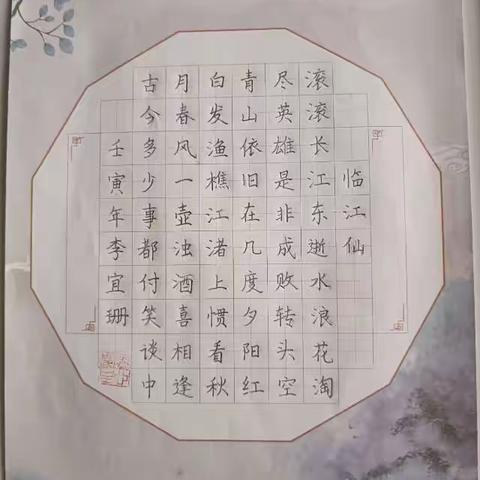 临江仙
滚滚长江东逝水浪花淘
尽英雄是非成败转头空
青山依旧在几度夕阳红
白发渔樵江渚上惯看秋
月春风一壶浊酒喜相逢
古今多少事都付笑谈中
壬寅年李宜珊